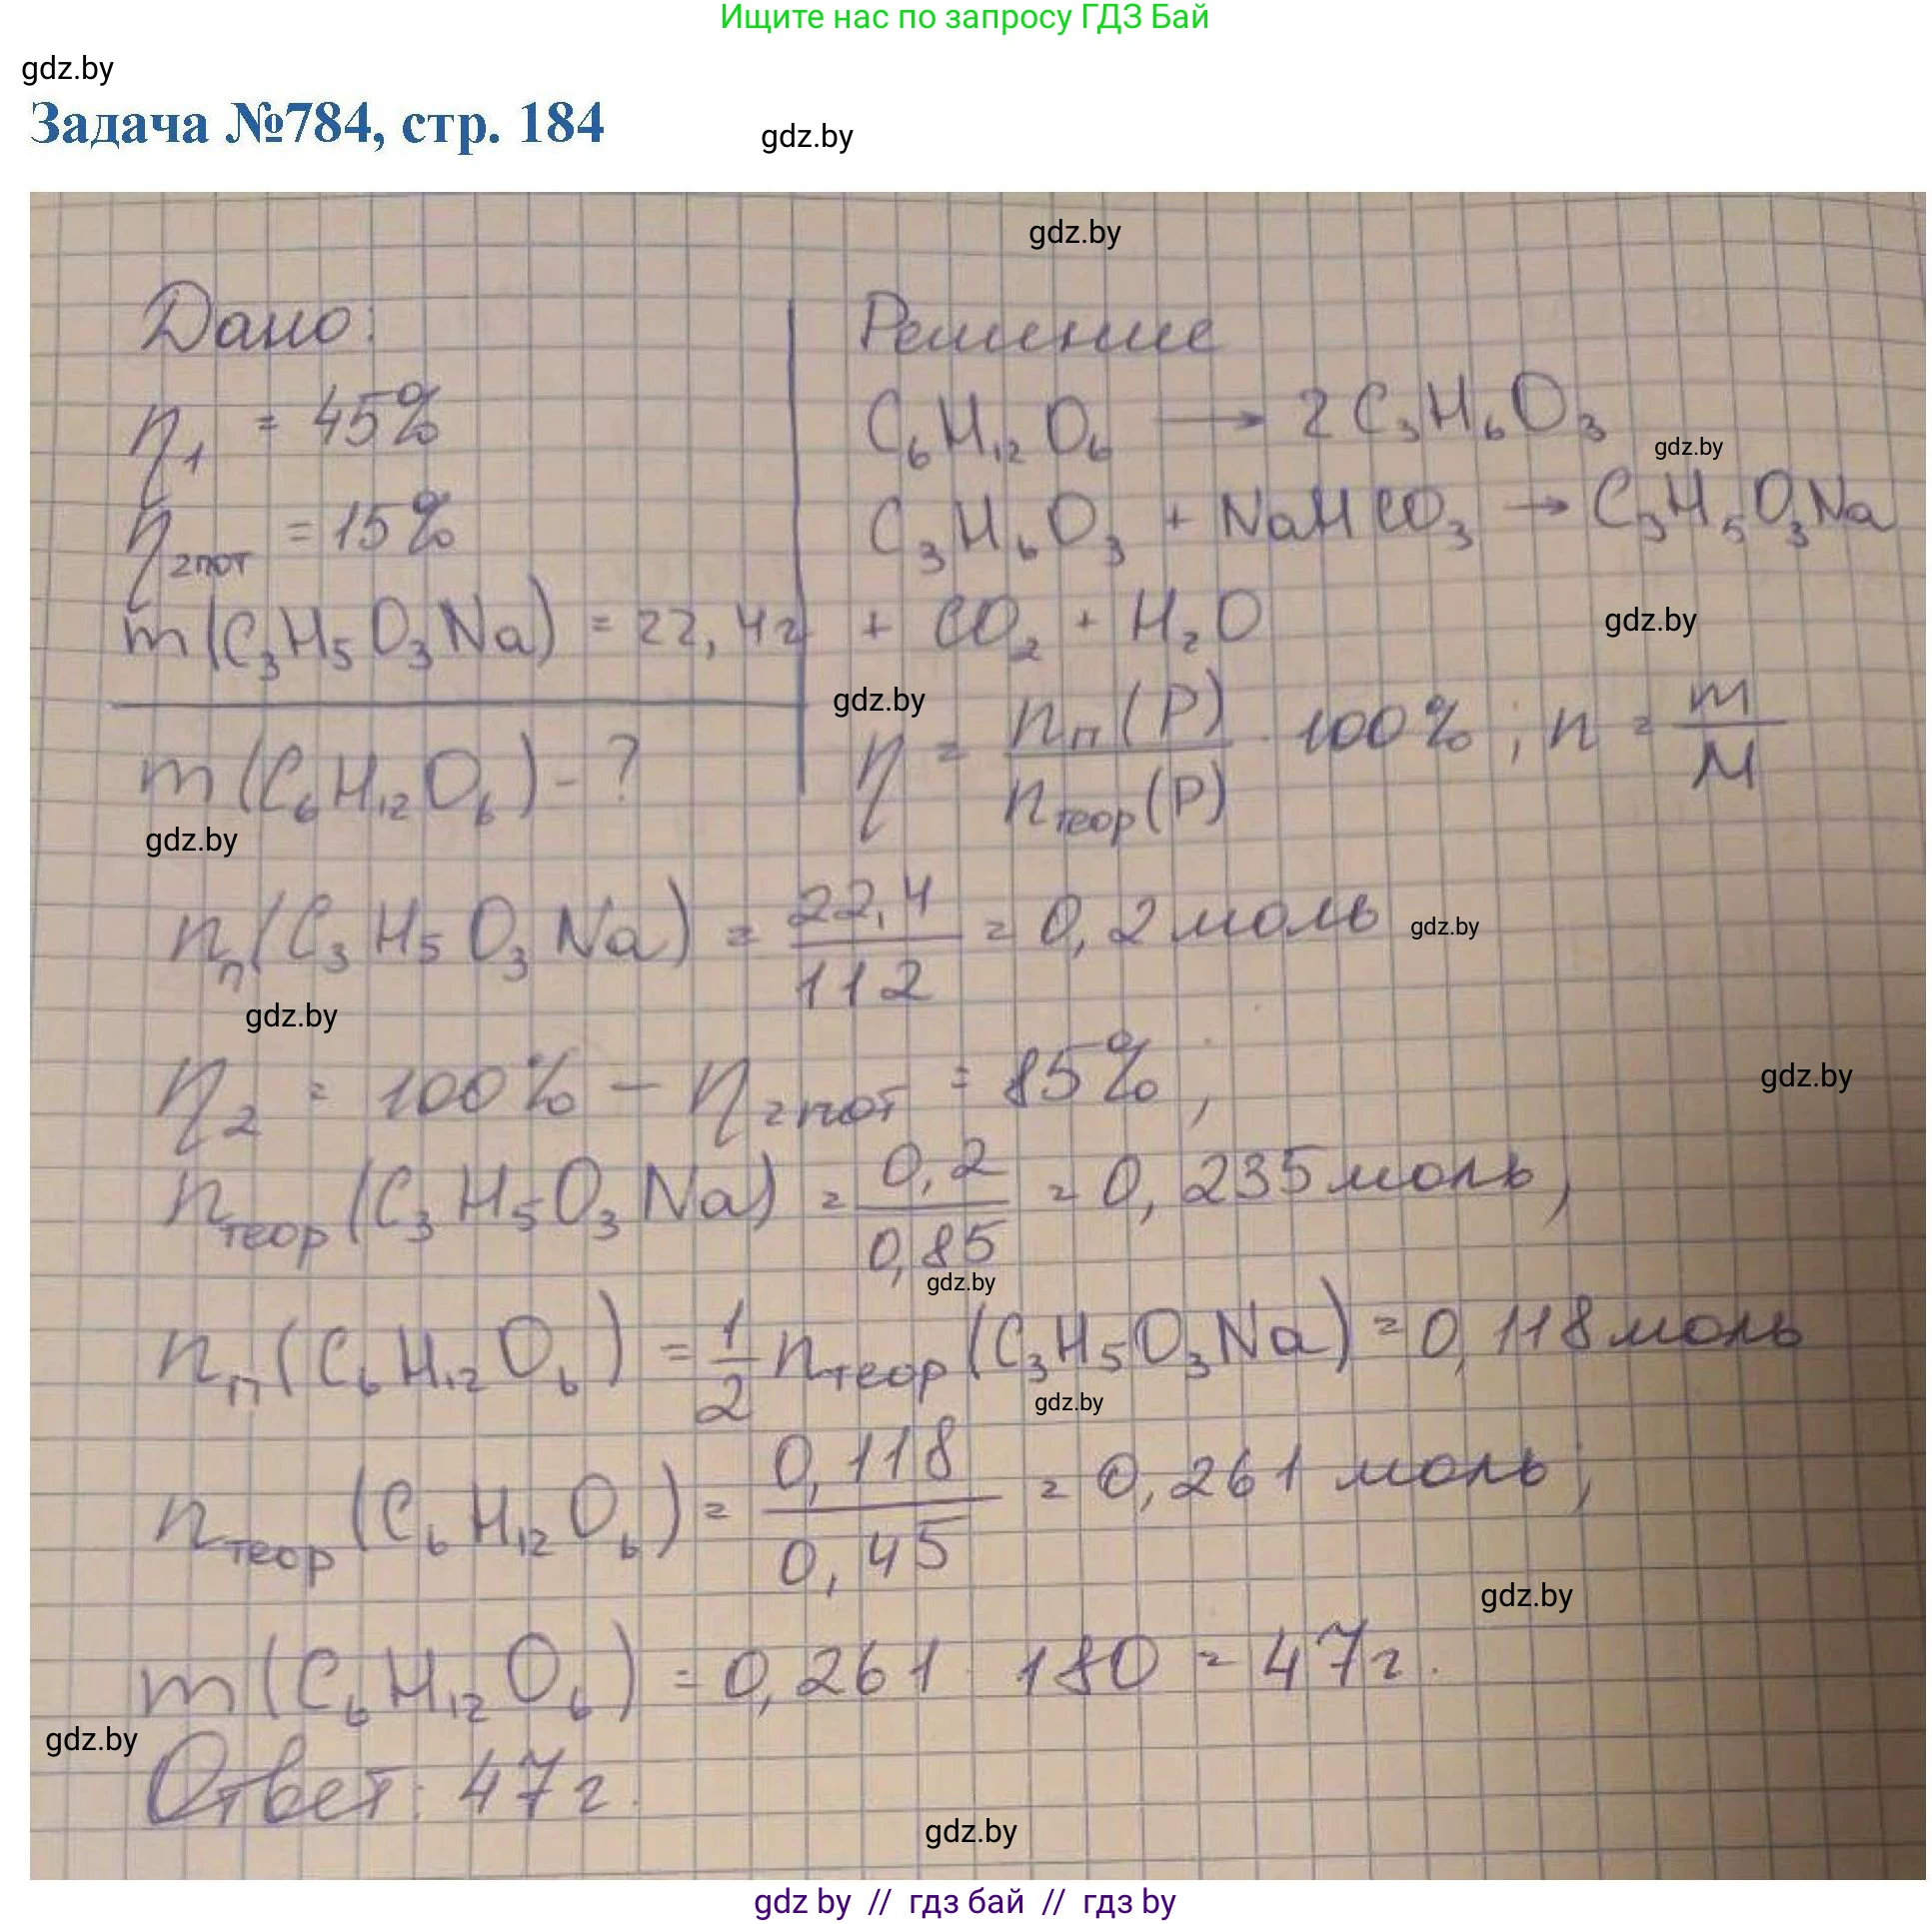 Ищите нас по запросу ГДЗ Бай
gdz.by
Задача №784, стр. 184
gdz.by
gdz.by
Дано:
η₁ = 45%
η₂пот = 15%
m(C₃H₅O₃Na) = 22,4г
m(C₆H₁₂O₆) - ?
gdz.by
Решение
C₆H₁₂O₆ → 2C₃H₆O₃
gdz.by
C₃H₆O₃ + NaHCO₃ → C₃H₅O₃Na
+ CO₂ + H₂O
gdz.by
gdz.by
η = nп(P) / nтеор(P) · 100%; n = m / M
nп(C₃H₅O₃Na) = 22,4 / 112 = 0,2 моль
gdz.by
gdz.by
η₂ = 100% - η₂пот = 85%;
gdz.by
nтеор(C₃H₅O₃Na) = 0,2 / 0,85 = 0,235 моль;
gdz.by
nп(C₆H₁₂O₆) = 1/2 nтеор(C₃H₅O₃Na) = 0,118 моль
gdz.by
nтеор(C₆H₁₂O₆) = 0,118 / 0,45 = 0,261 моль;
gdz.by
m(C₆H₁₂O₆) = 0,261 · 180 = 47г.
gdz.by
Ответ: 47г.
gdz.by
gdz by // гдз бай // гдз by